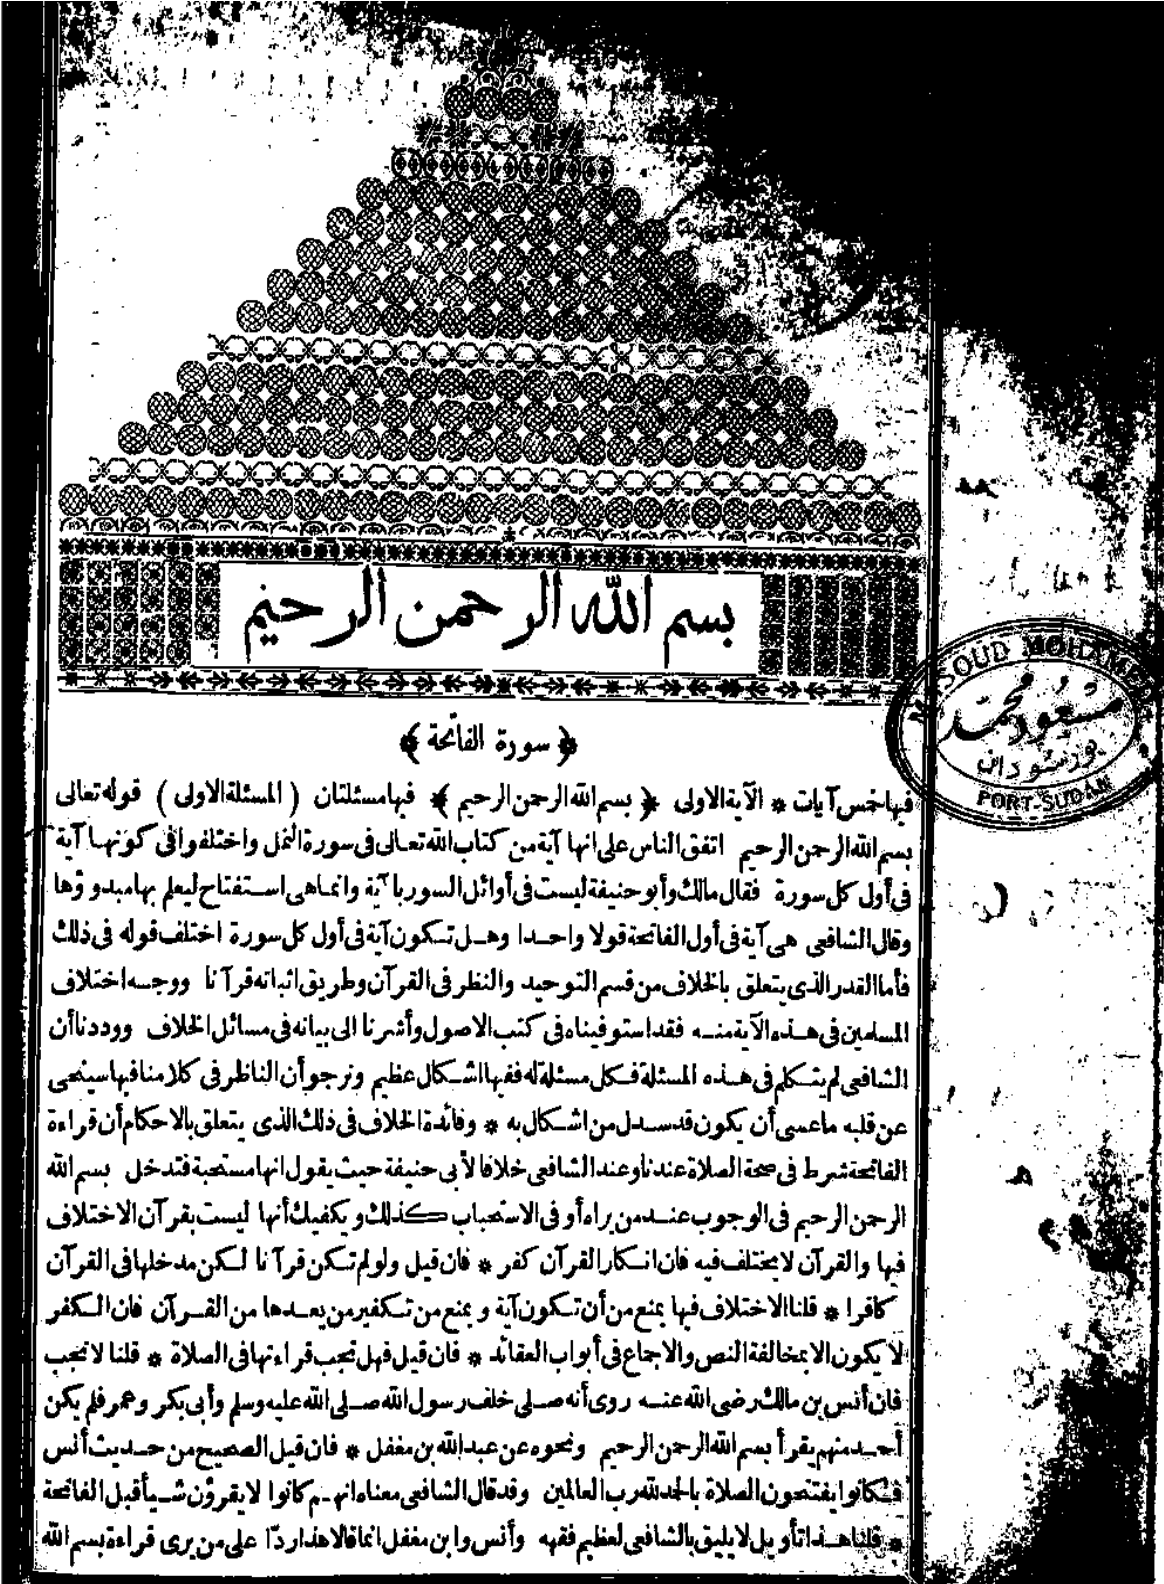 بسم الله الرحمن الرحيم
MASOUD MOHAMED
مسعود محمد
بورتسودان
PORT-SUDAN
﴿ سورة الفاتحة ﴾
فيها خمس آيات * الآية الاولى ﴿ بسم الله الرحمن الرحيم ﴾ فيها مسئلتان ( المسئلة الاولى ) قوله تعالى
بسم الله الرحمن الرحيم اتفق الناس على انها آية من كتاب الله تعالى فى سورة النمل واختلفوا فى كونها آية
فى أول كل سورة فقال مالك وأبو حنيفة ليست فى أوائل السور بآية وانما هى استفتاح ليعلم بها مبدؤها
وقال الشافعى هى آية فى أول الفاتحة قولا واحدا وهل تكون آية فى أول كل سورة اختلف قوله فى ذلك
فأما القدر الذى يتعلق بالخلاف من قسم التوحيد والنظر فى القرآن وطريق اثباته قرآنا ووجه اختلاف
المسلمين فى هذه الآية منه فقد استوفيناه فى كتب الاصول وأشرنا الى بيانه فى مسائل الخلاف ووددنا أن
الشافعى لم يتكلم فى هذه المسئلة فكل مسئلة له ففيها اشكال عظيم ونرجو أن الناظر فى كلامنا فيها سينمحى
عن قلبه ما عسى أن يكون قد سدل من اشكال به * وفائدة الخلاف فى ذلك الذى يتعلق بالاحكام أن قراءة
الفاتحة شرط فى صحة الصلاة عندنا وعند الشافعى خلافا لأبى حنيفة حيث يقول انها مستحبة فتدخل بسم الله
الرحمن الرحيم فى الوجوب عند من يراه أو فى الاستحباب كذلك ويكفيك أنها ليست بقرآن الاختلاف
فيها والقرآن لا يختلف فيه فان انكار القرآن كفر * فان قيل ولو لم تكن قرآنا لكن مدخلها فى القرآن
كافرا * قلنا الاختلاف فيها يمنع من أن تكون آية ويمنع من تكفير من يعدها من القرآن فان الكفر
لا يكون الا بمخالفة النص والاجماع فى أبواب العقائد * فان قيل فهل تجب قراءتها فى الصلاة * قلنا لا تجب
فان أنس بن مالك رضى الله عنه روى أنه صلى خلف رسول الله صلى الله عليه وسلم وأبى بكر وعمر فلم يكن
أحد منهم يقرأ بسم الله الرحمن الرحيم ونحوه عن عبد الله بن مغفل * فان قيل الصحيح من حديث أنس
فكانوا يفتتحون الصلاة بالحمد لله رب العالمين وقد قال الشافعى معناه انهم كانوا لا يقرؤن شيأ قبل الفاتحة
* قلنا هذا تأويل لا يليق بالشافعى لعظيم فقهه وأنس وابن مغفل انما قالا هذا ردّا على من يرى قراءة بسم الله